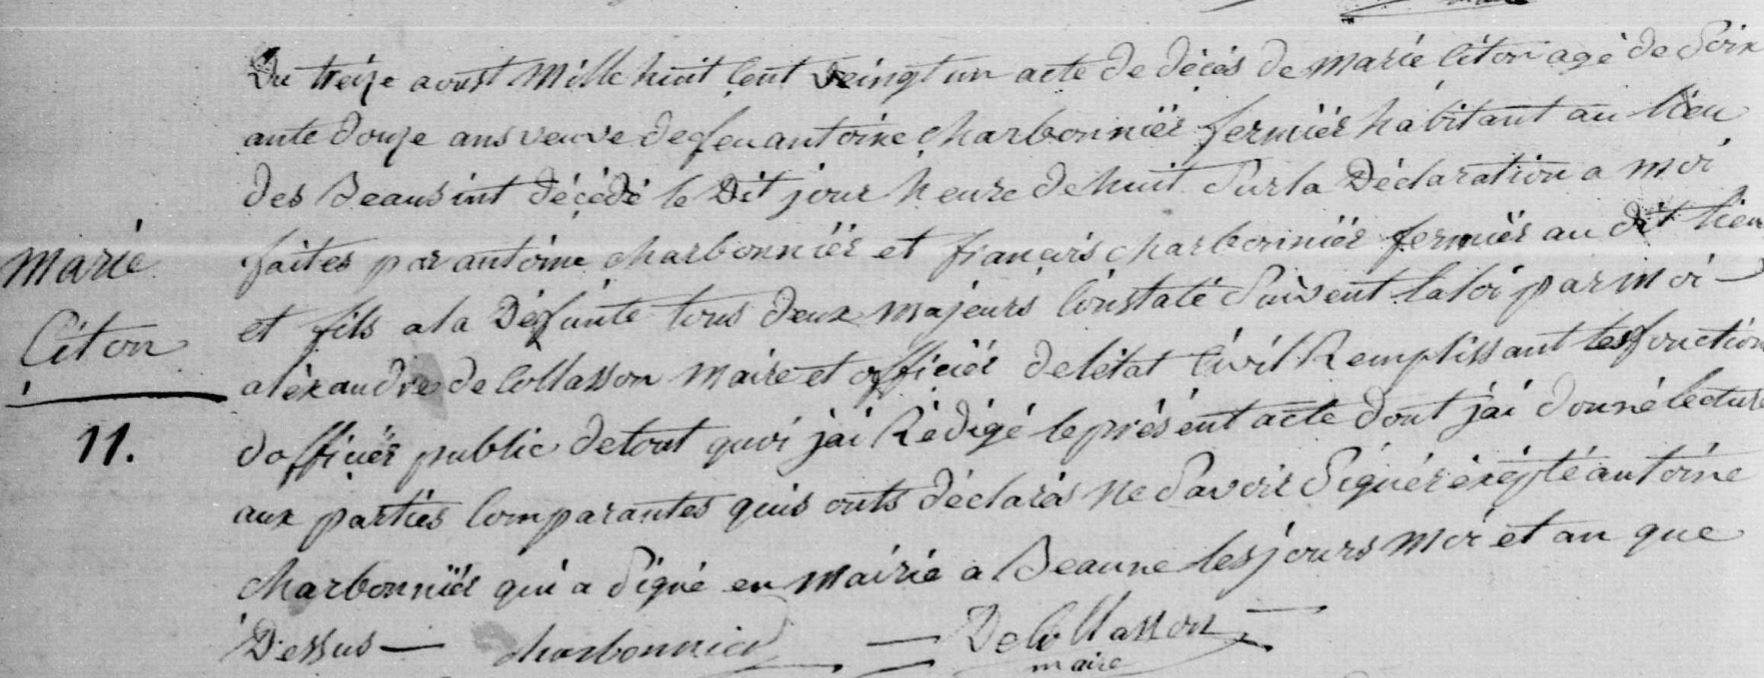 Du treize aoust Mille huit Cent Veingt un acte de décés de marie Citon agé de Soix
ante douze ans veuve de feu antoine charbonniér fermiér habitant au lieu
des Beausint décédé le Dit jour heure de huit Sur la Déclaration a moi
faites par antoine charbonniér et françois charbonniér fermiér au dit lieu
marie
et fils a la Défunte tous deux majeurs Constaté Suivent la loi par moi —
Citon
aléxandre de Collasson Maire et officiér de létat Civil Remplissant les fonction
11.
dofficiér public de tout quoi jai Rédigé le présént acte dont jai donné lecture
aux partiés Comparantes quis onts déclarés Ne Savoir Signér éxépté antoine
charbonniér qui a Signé en Mairie a Beaune les jours Moi et an que
Dessus — charbonnier — De Collasson
maire